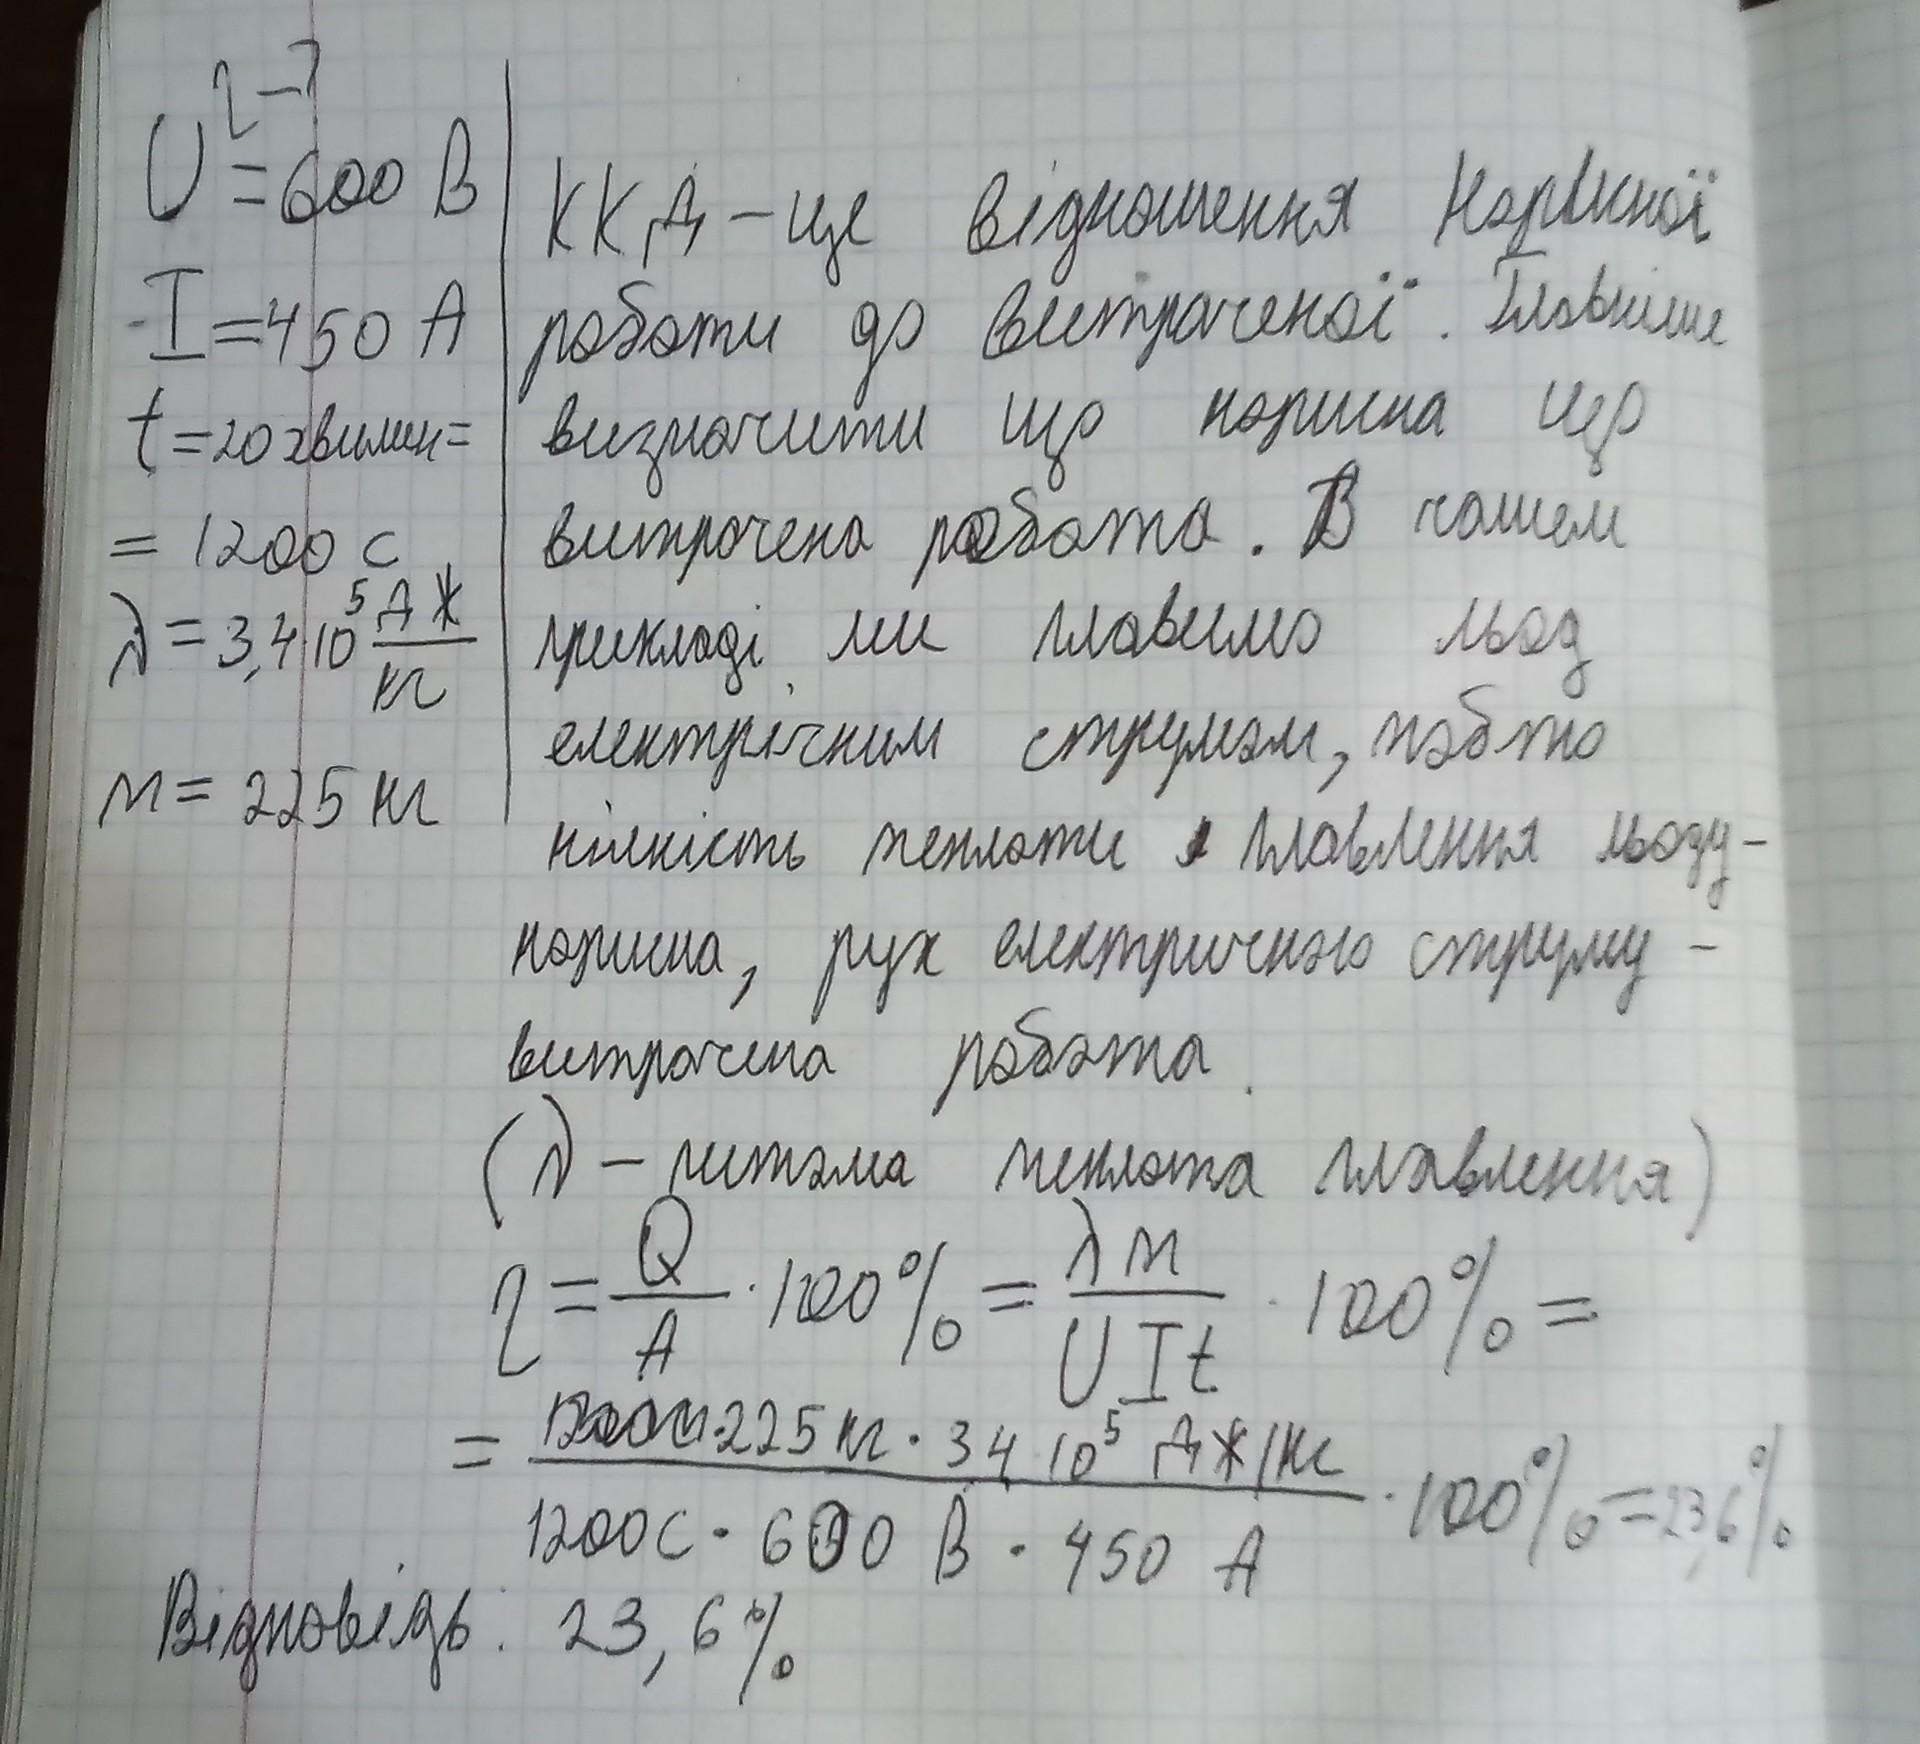 η – ?
U = 600 В
I = 450 А
t = 20 хвилин =
= 1200 с
λ = 3,4·10⁵ Дж/кг
m = 225 кг
ККД – це відношення корисної
роботи до витраченої. Головніше
визначити що корисна що
витрачена робота. В нашем
прикладі ми плавимо льод
електрічним струмом, тобто
кількість теплоти плавлення льоду –
корисна, рух електричного струму –
витрачена робота.
(λ – питома теплота плавлення)
η = Q/A · 100% = λm/UIt · 100% =
= 225 кг · 34·10⁵ Дж/кг / 1200с · 600 В · 450 А · 100% = 23,6%
Відповідь: 23,6%